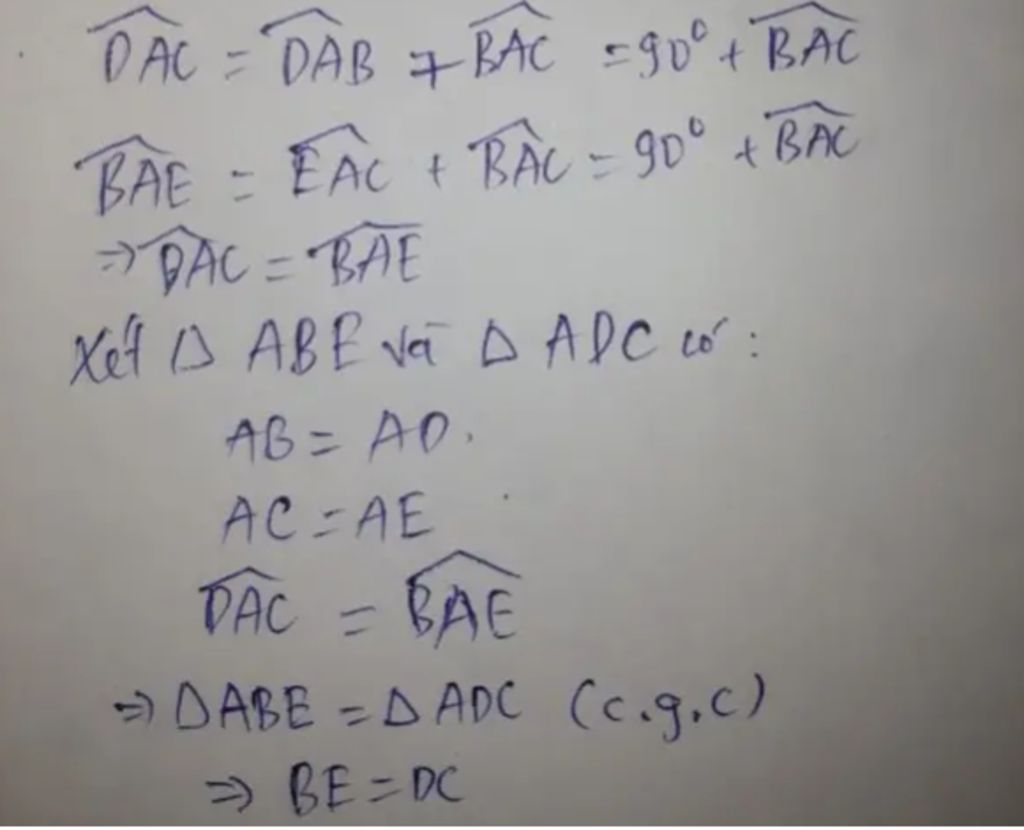 \widehat{DAC} = \widehat{DAB} + \widehat{BAC} = 90° + \widehat{BAC}
\widehat{BAE} = \widehat{EAC} + \widehat{BAC} = 90° + \widehat{BAC}
⇒ \widehat{DAC} = \widehat{BAE}
Xét Δ ABE và Δ ADC có :
AB = AD.
AC = AE
\widehat{DAC} = \widehat{BAE}
⇒ ΔABE = Δ ADC (c.g.c)
⇒ BE = DC